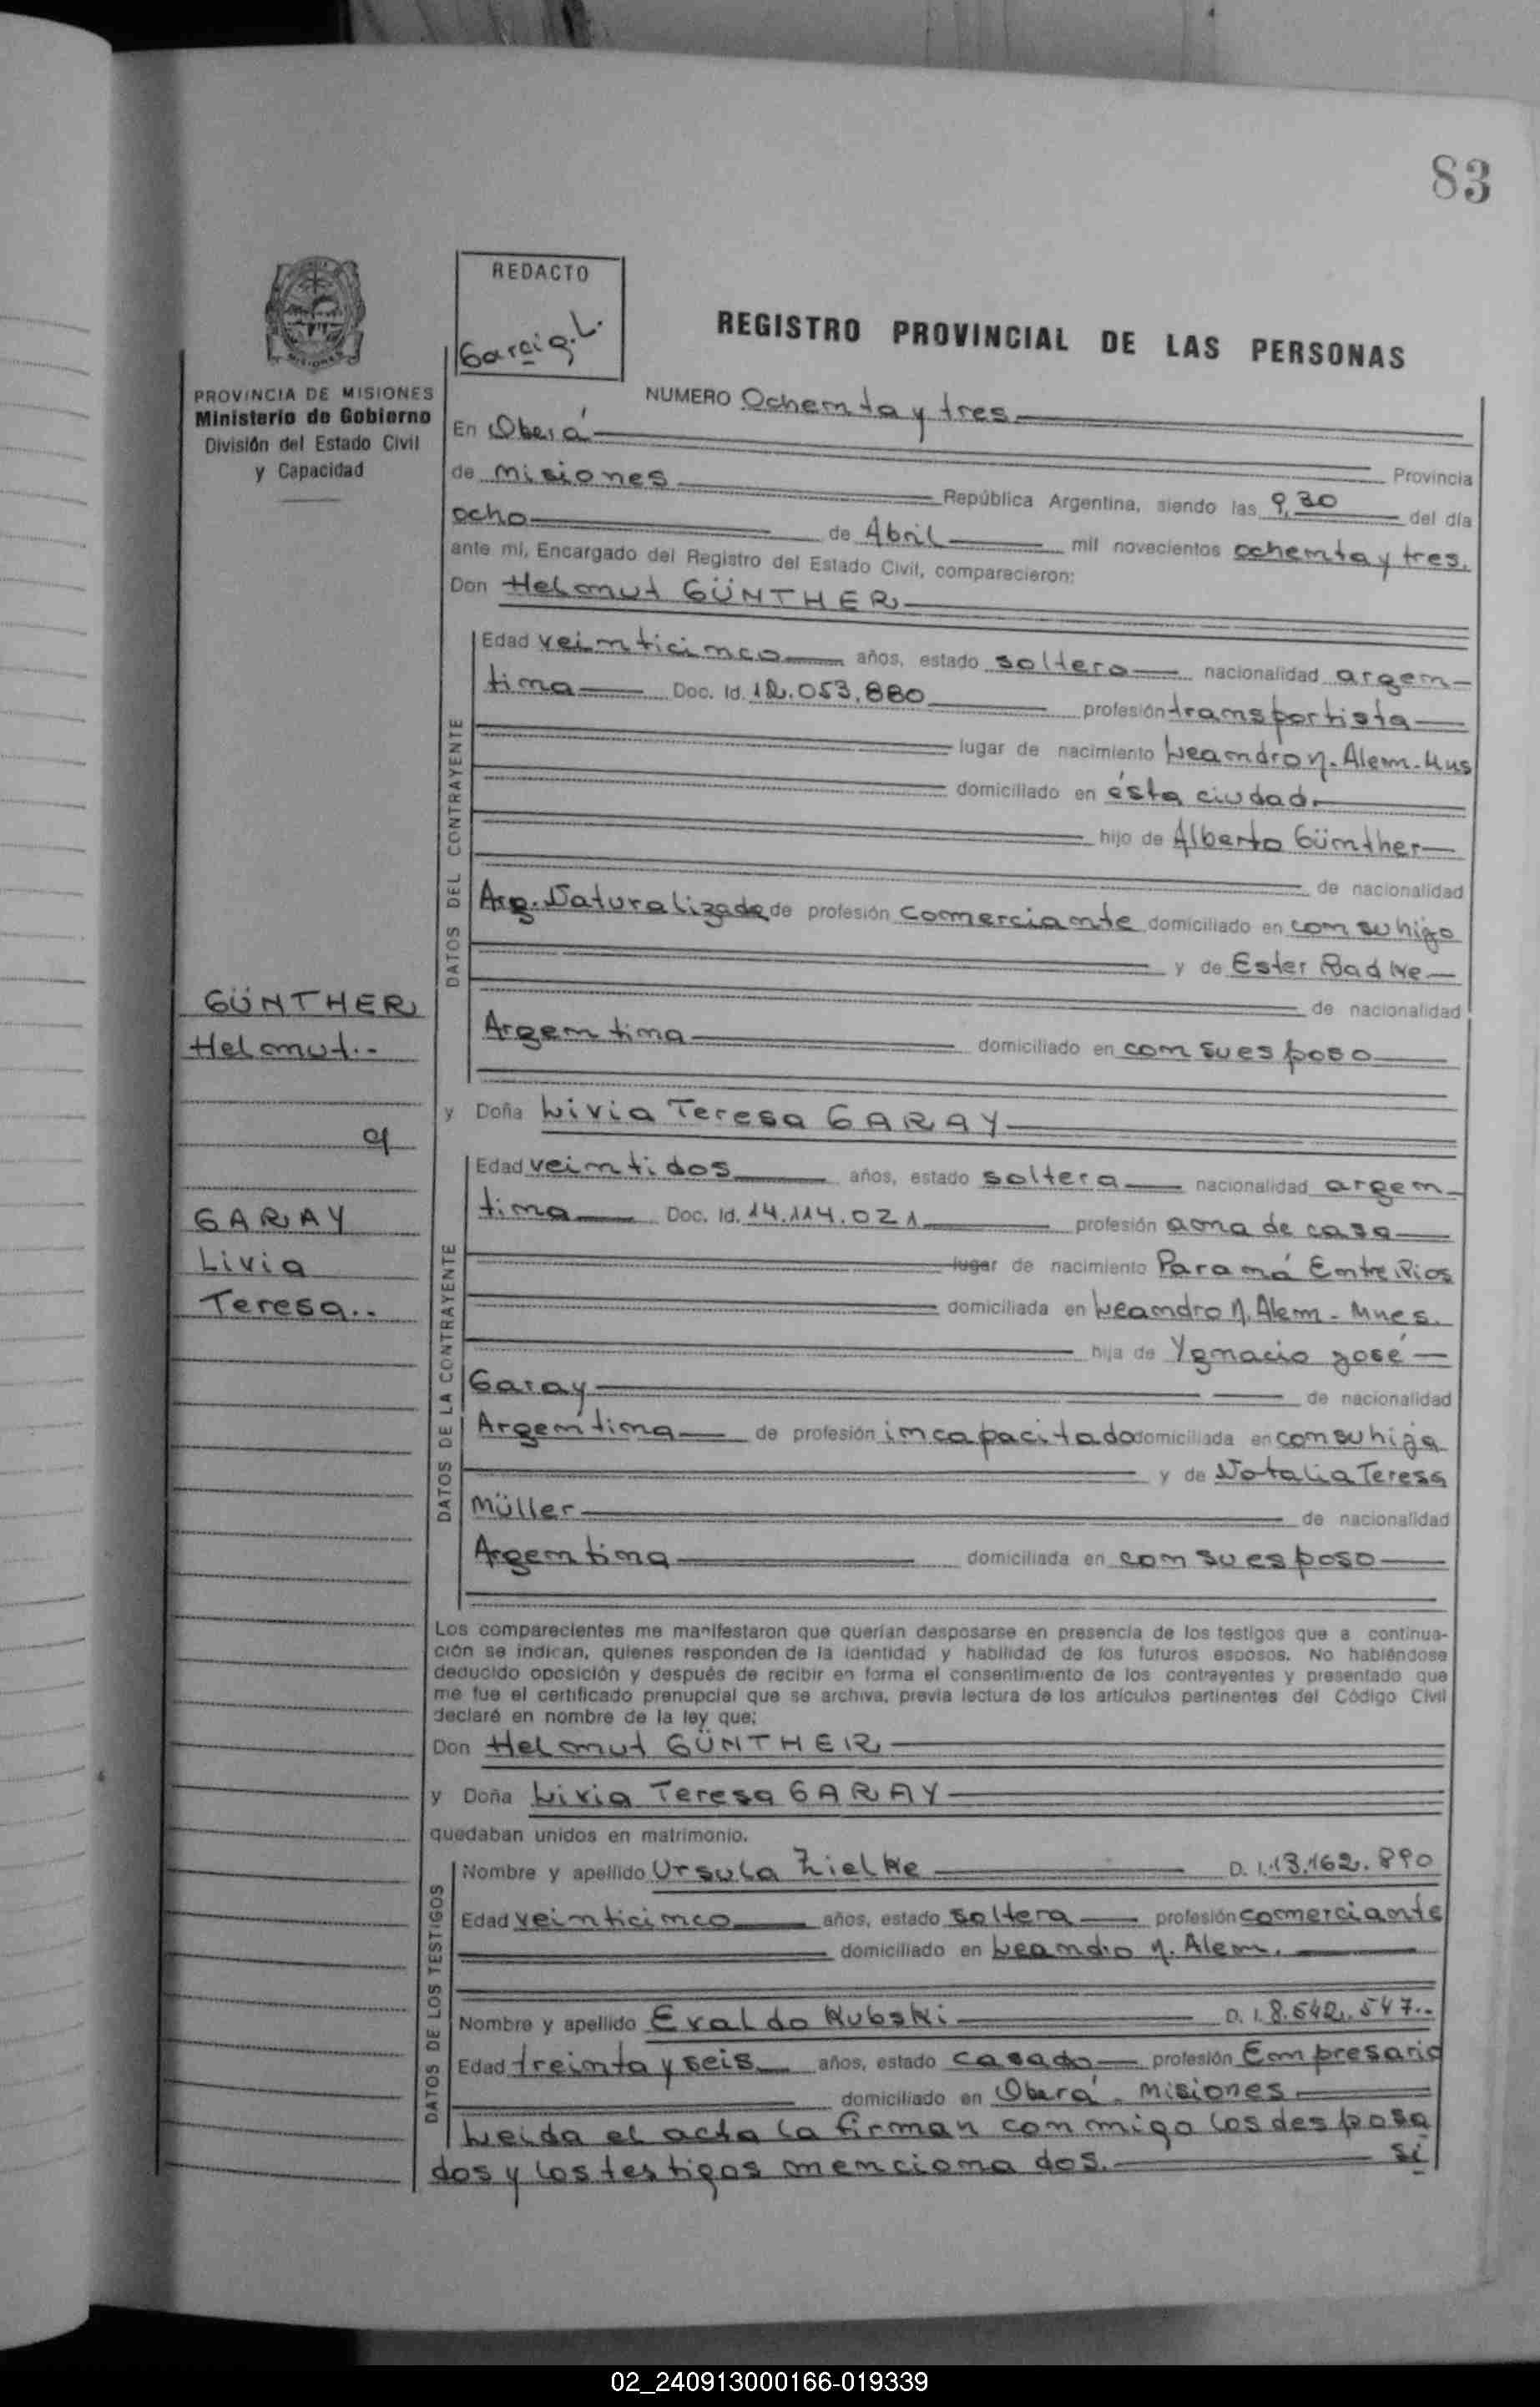 83
REDACTO
Garcia L.
REGISTRO PROVINCIAL DE LAS PERSONAS
PROVINCIA DE MISIONES
Ministerio de Gobierno
División del Estado Civil
y Capacidad
NUMERO Ochenta y tres
En Oberá
Provincia
de misiones República Argentina, siendo las 9,30 del día
ocho de Abril mil novecientos ochenta y tres.
ante mí, Encargado del Registro del Estado Civil, comparecieron:
Don Helmut GÜNTHER
DATOS DEL CONTRAYENTE
Edad veinticinco años, estado soltero nacionalidad argen-
tina Doc. Id. 12.053.880 profesión transportista
lugar de nacimiento Leandro N. Alem-
domiciliado en ésta ciudad.
hijo de Alberto Günther
de nacionalidad
Arg. Naturalizado de profesión comerciante domiciliado en con su hijo
y de Ester Radke
de nacionalidad
Argentina domiciliado en con su esposo
GÜNTHER
Helmut.-
c/
GARAY
Livia
Teresa..
y Doña Livia Teresa GARAY
DATOS DE LA CONTRAYENTE
Edad veintidos años, estado soltera nacionalidad argen-
tina Doc. Id. 14.114.021 profesión ama de casa
lugar de nacimiento Paraná Entre Rios
domiciliada en Leandro N. Alem - Mnes.
hija de Ygnacio José
Garay de nacionalidad
Argentina de profesión incapacitado domiciliada en con su hija
y de Natalia Teresa
Müller de nacionalidad
Argentina domiciliada en con su esposo
Los comparecientes me manifestaron que querían desposarse en presencia de los testigos que a continua-
ción se indican, quienes responden de la identidad y habilidad de los futuros esposos. No habiéndose
deducido oposición y después de recibir en forma el consentimiento de los contrayentes y presentado que
me fue el certificado prenupcial que se archiva, previa lectura de los artículos pertinentes del Código Civil
declaré en nombre de la ley que:
Don Helmut GÜNTHER
y Doña Livia Teresa GARAY
quedaban unidos en matrimonio.
DATOS DE LOS TESTIGOS
Nombre y apellido Ursula Zielke D. I. 13.162.890
Edad veinticinco años, estado soltera profesión comerciante
domiciliado en Leandro N. Alem.
Nombre y apellido Evaldo Kubski D. I. 8.542.547..
Edad treinta y seis años, estado casado profesión Empresario
domiciliado en Oberá - misiones
Leída el acta la firman conmigo los desposa
dos y los testigos mencionados. Si
02_240913000166-019339